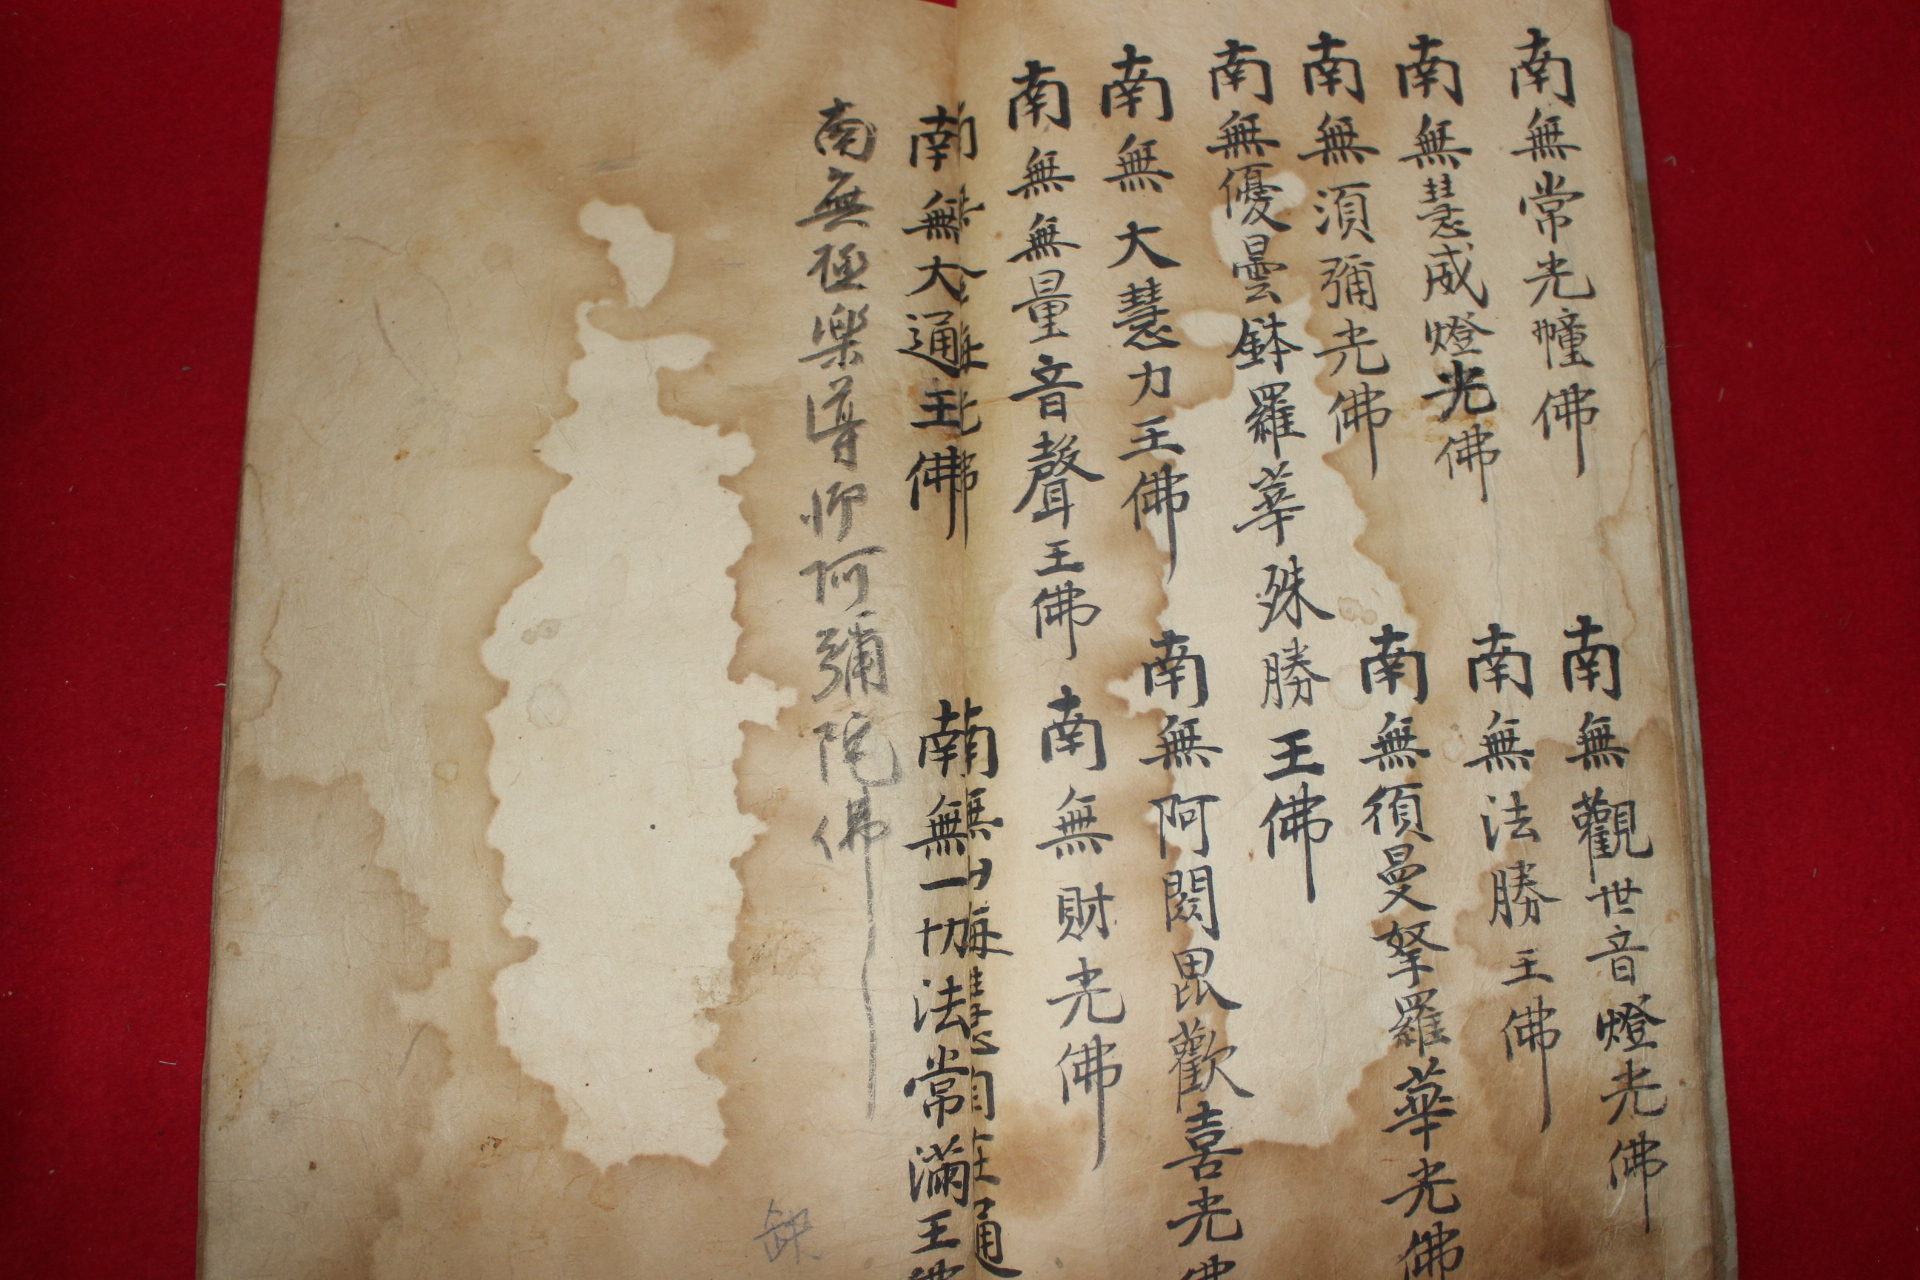 南無常光幢佛
南無觀世音燈光佛
南無慧威燈光佛
南無法勝王佛
南無須彌光佛
南無須曼那羅華光佛
南無優曇鉢羅華殊勝王佛
南無大慧力王佛
南無阿閦毘歡喜光佛
南無無量音聲王佛
南無財光佛
南無大通王佛
南無一切法常滿王佛
南無極樂導師阿彌陀佛